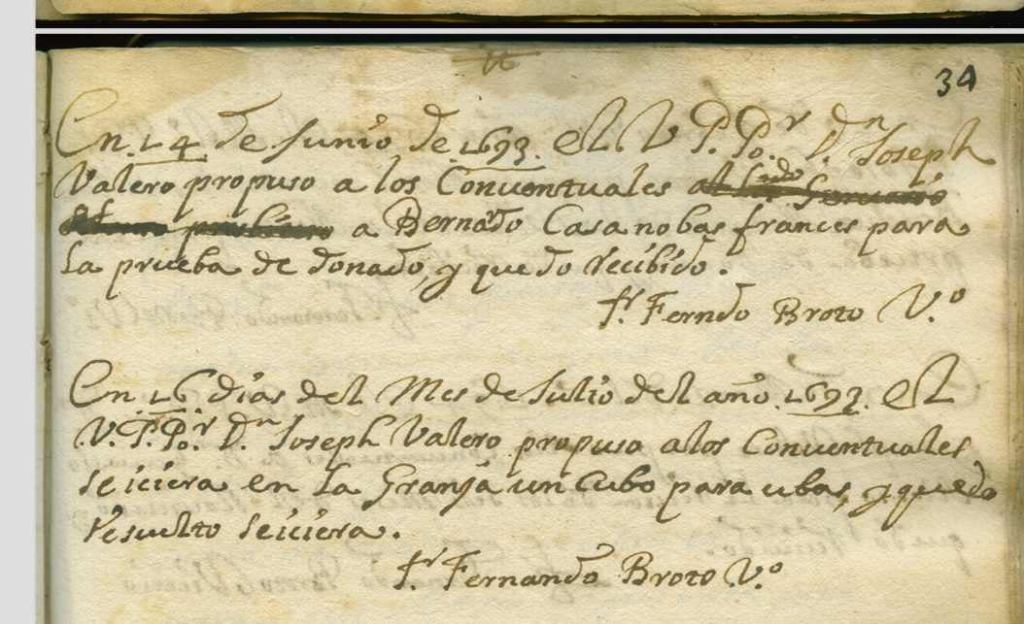 34
En 14 de Junio de 1693. el V. P. Por. Dn Joseph
Valero propuso a los Conventuales
a Bernado Casanobas frances para
la prueba de donado, y quedo recibido.
fr. Ferndo Broto V.o
En 16 dias del Mes de Julio del año 1693. el
V. P. Por. Dn Joseph Valero propuso a los Conventuales
se iciera en la Granja un Cubo para ubas, y quedo
resuelto se iciera.
fr. Fernando Broto V.o